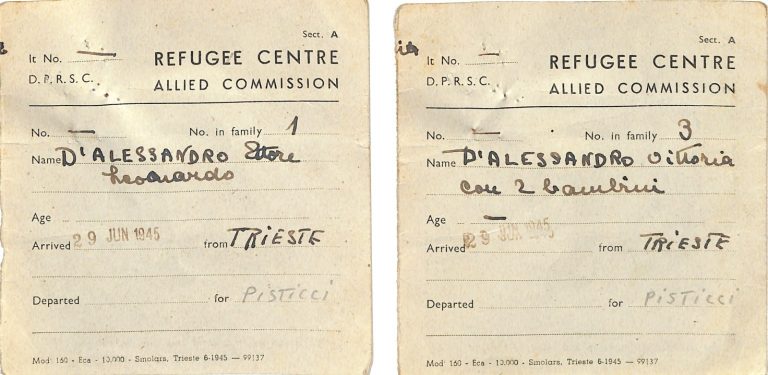 Sect. A
It No. —
REFUGEE CENTRE
D. P. R. S. C.
ALLIED COMMISSION
No. — No. in family 1
Name D'ALESSANDRO Ettore
Leonardo
Age
Arrived 29 JUN 1945 from TRIESTE
Departed for PISTICCI
Mod' 160 - Eca - 10,000 - Smolars, Trieste 6-1945 — 99137
Sect. A
It No. —
REFUGEE CENTRE
D. P. R. S. C.
ALLIED COMMISSION
No. — No. in family 3
Name D'ALESSANDRO Vittoria
con 2 bambini
Age —
Arrived 29 JUN 1945 from TRIESTE
Departed for PISTICCI
Mod' 160 - Eca - 10,000 - Smolars, Trieste 6-1945 — 99137